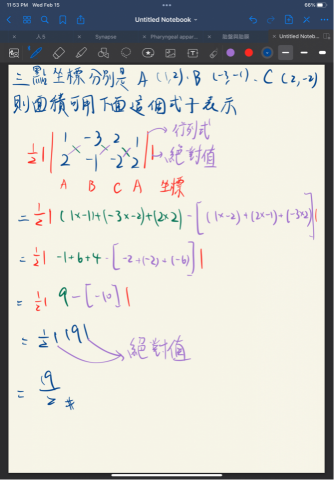 11:53 PM Wed Feb 15
66%
Untitled Notebook
人5
Synapse
Pharyngeal appar...
Untitled Notebook
三點坐標分別是 A (1,2)、B (-3,-1)、C (2,-2)
則面積可用下面這個式子表示
1/2 | | 1 -3 2 1 | | 行列式
2 -1 -2 2 絕對值
A B C A 坐標
= 1/2 | (1×-1)+(-3×-2)+(2×2) - [(1×-2)+(2×-1)+(-3×2)] |
= 1/2 | -1+6+4 - [-2+(-2)+(-6)] |
= 1/2 | 9-[-10] |
= 1/2 |19| 絕對值
= 19/2 #